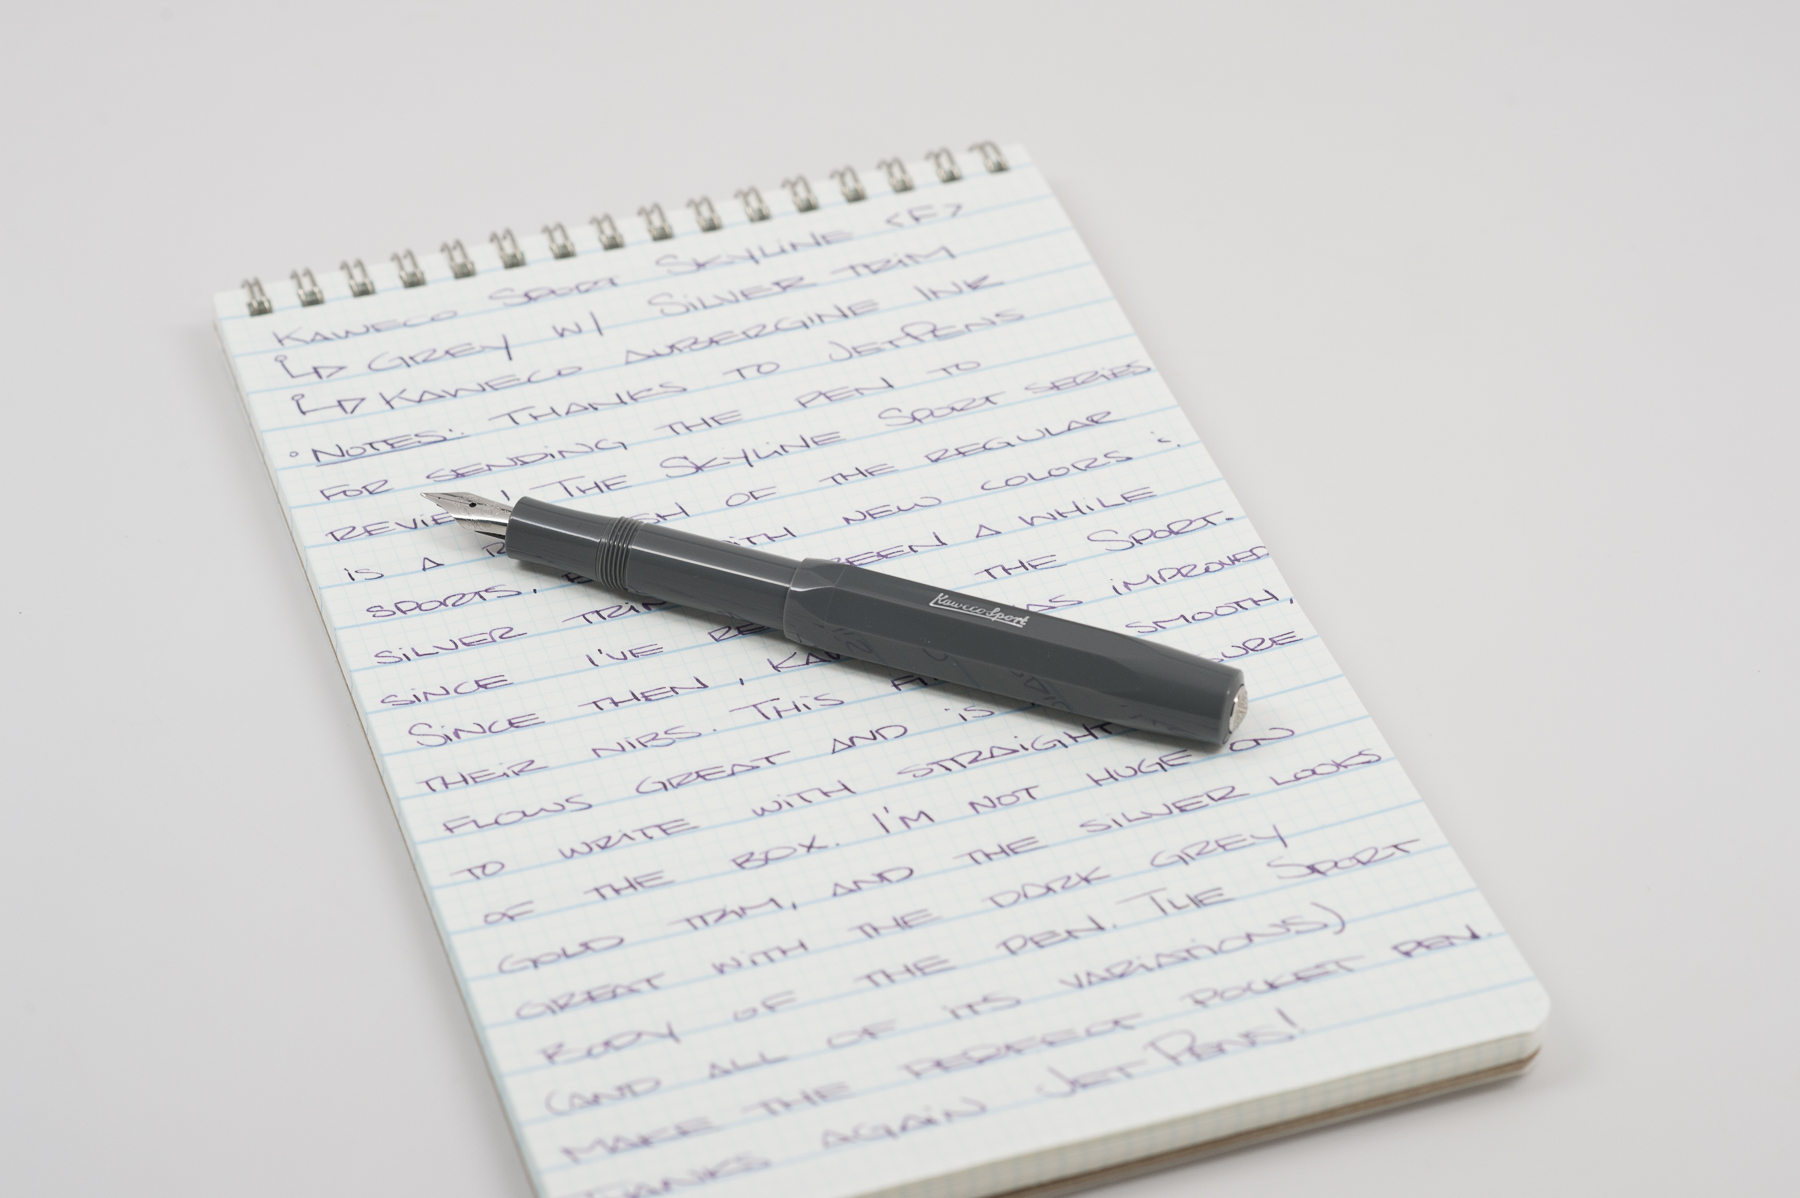 KAWECO SPORT SKYLINE <F>
↳ GREY W/ SILVER TRIM
↳ KAWECO AUBERGINE INK
° NOTES: THANKS TO JETPENS
FOR SENDING THE PEN TO
REVIEW! THE SKYLINE SPORT SERIES
IS A OF THE REGULAR
SPORTS, WITH NEW COLORS &
SILVER TRIM BEEN A WHILE
SINCE I'VE THE SPORT.
SINCE THEN, HAS IMPROVED
THEIR NIBS. THIS SMOOTH,
FLOWS GREAT AND IS
TO WRITE WITH STRAIGHT
OF THE BOX. I'M NOT HUGE ON
GOLD TRIM, AND THE SILVER LOOKS
GREAT WITH THE DARK GREY
BODY OF THE PEN. THE SPORT
(AND ALL OF ITS VARIATIONS)
MAKE THE PERFECT POCKET PEN.
THANKS AGAIN JETPENS!
Kaweco Sport